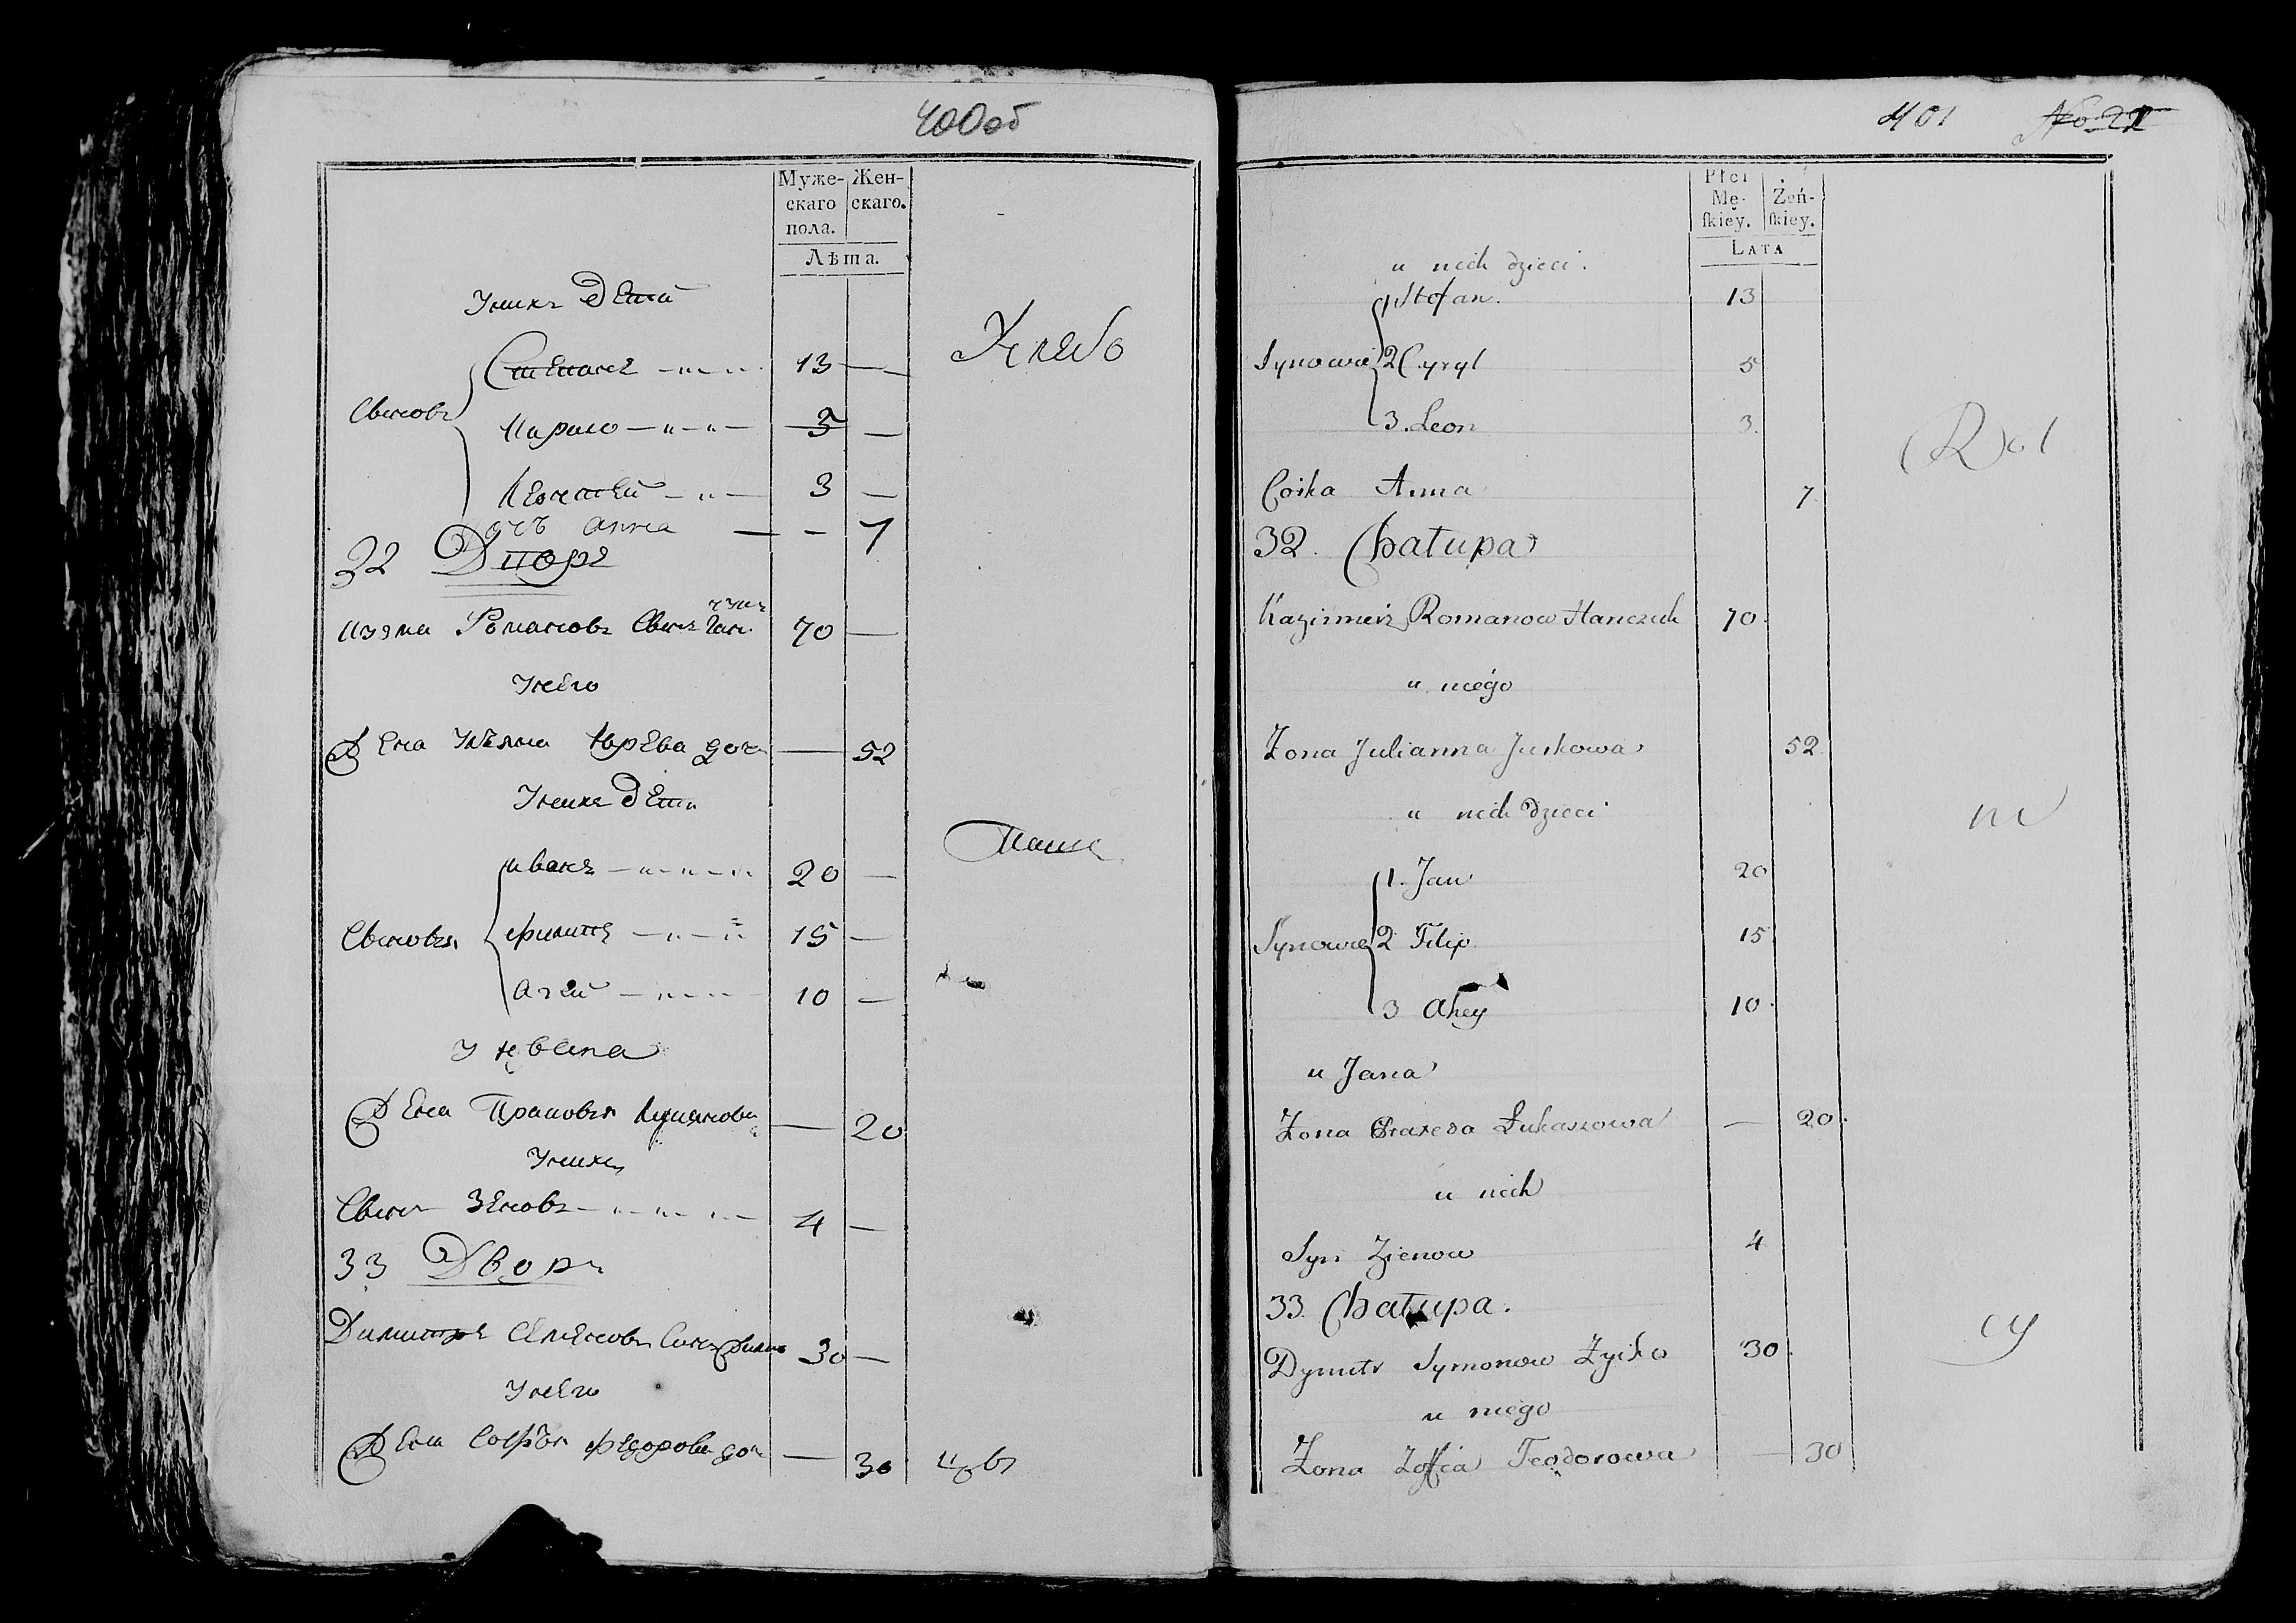 400об
Муже- Жен-
скаго скаго.
пола.
Лѣта.
У нихъ дети
Хлебо
Степанъ 13 —
Сыновя
Кирило 5 —
Леонтей 3 —
дчь анна — - 7
32 Дворъ
Козма Романовъ Сынъ Ганчукъ 70 —
У него
Жена Ульяна Юрева доч — 52
У нихъ Дети
Паше
иванъ 20 —
Сыновья филипъ 15 —
агей 10 —
У ивана
Жена Прасковья Лукянова — 20
У нихъ
Сынъ Зеновъ 4 —
33 Дворъ
Димитръ Семеновъ Сынъ 30 —
У него
Жена Софья Федорова доч — 30
401 No 22
Płci
Mę- Żeń-
ſkiey. ſkiey.
LATA
u nich dzieci.
1 Stefan. 13
Synowie 2 Cyryl 5
3. Leon 3.
Rol
Corka Anna 7
32. Chałupa
Kazimierz Romanow Hanczuk 70.
u niego
Zona Julianna Jurkowa 52.
u nich dzieci
ni
1. Jan 20
Synowie 2 Filip 15
3 Ahey 10.
u Jana
Zona Praxeda Łukaszowa — 20.
u nich
Syn Zienow 4
33. Chałupa.
cy
Dymitr Symonow Zyiko 30.
u niego
Zona Zoffia Teodorowa — 30